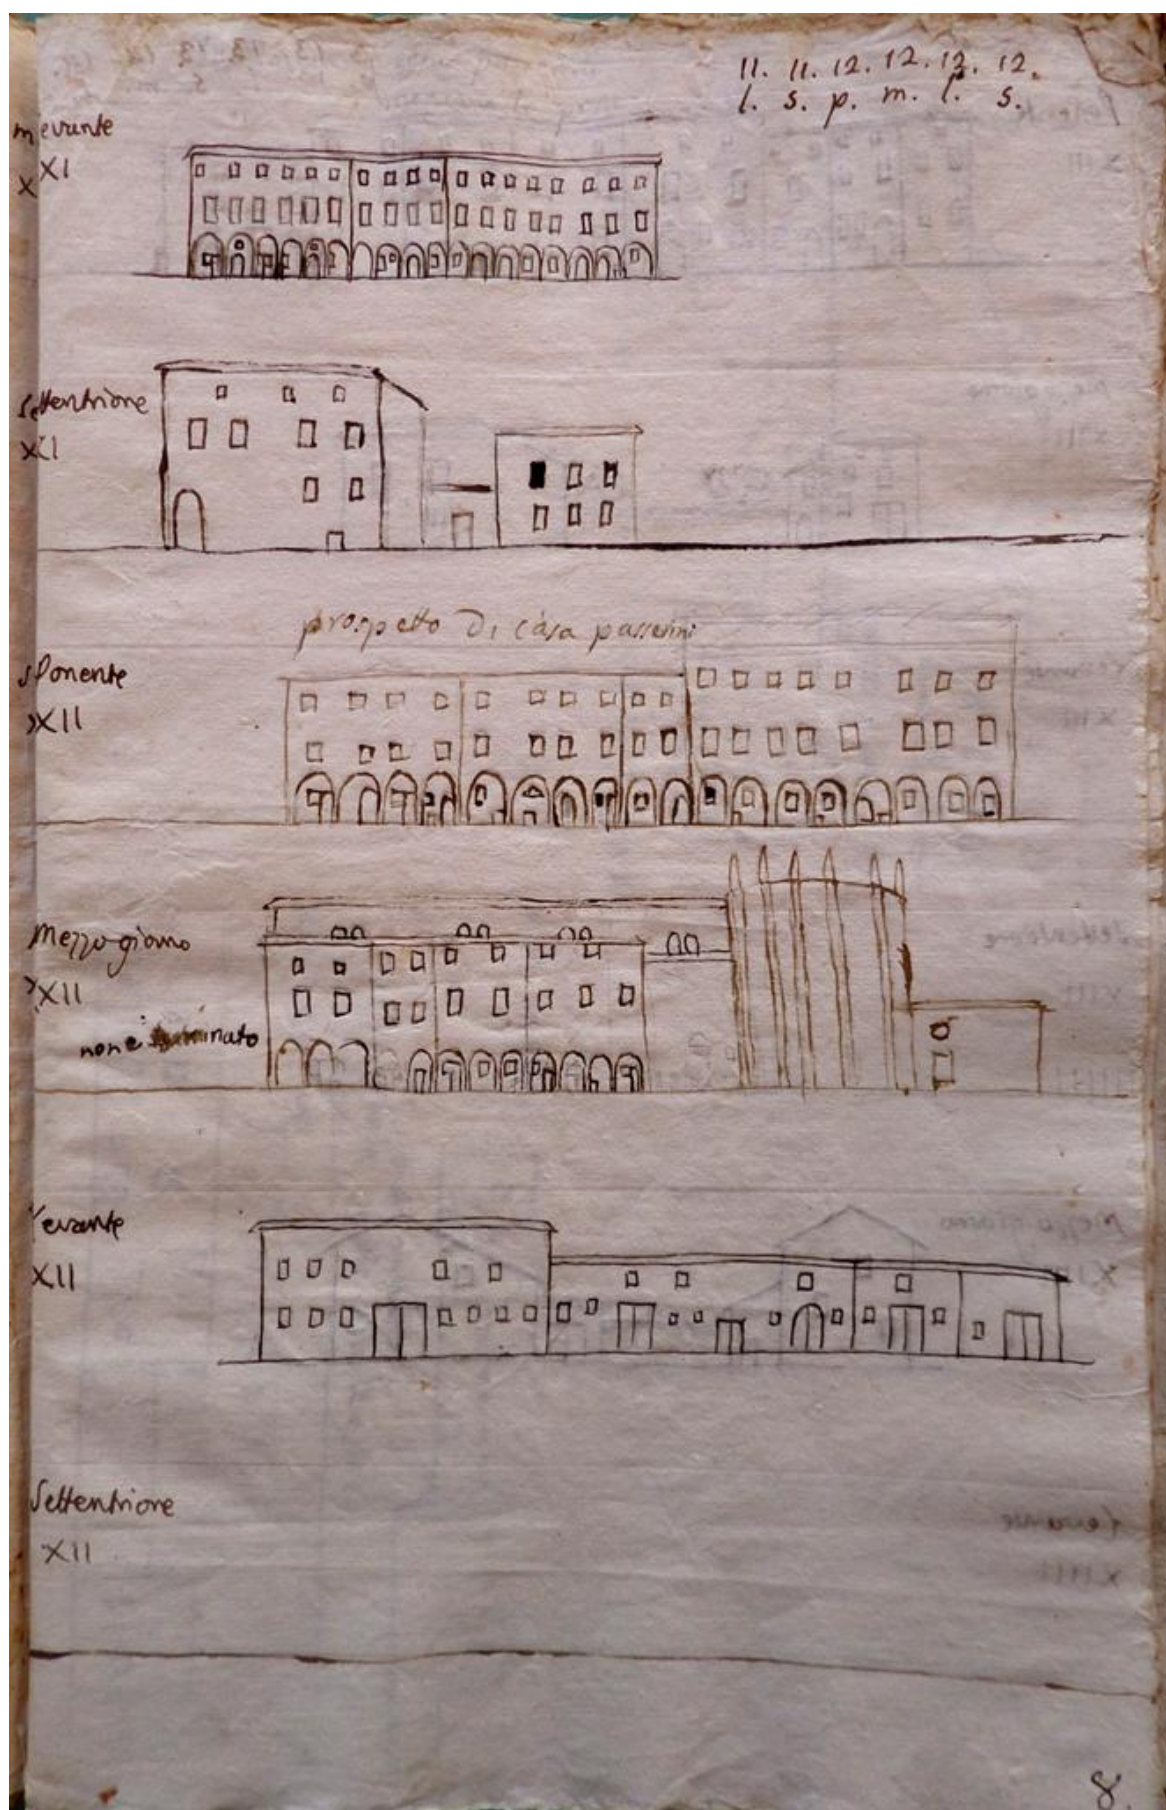 11. 11. 12. 12. 12. 12.
l. s. p. m. l. s.
levante
XI
settentrione
XI
prospetto di casa passerini
ponente
XII
mezzo giorno
XII
non è
levante
XII
settentrione
XII
8.